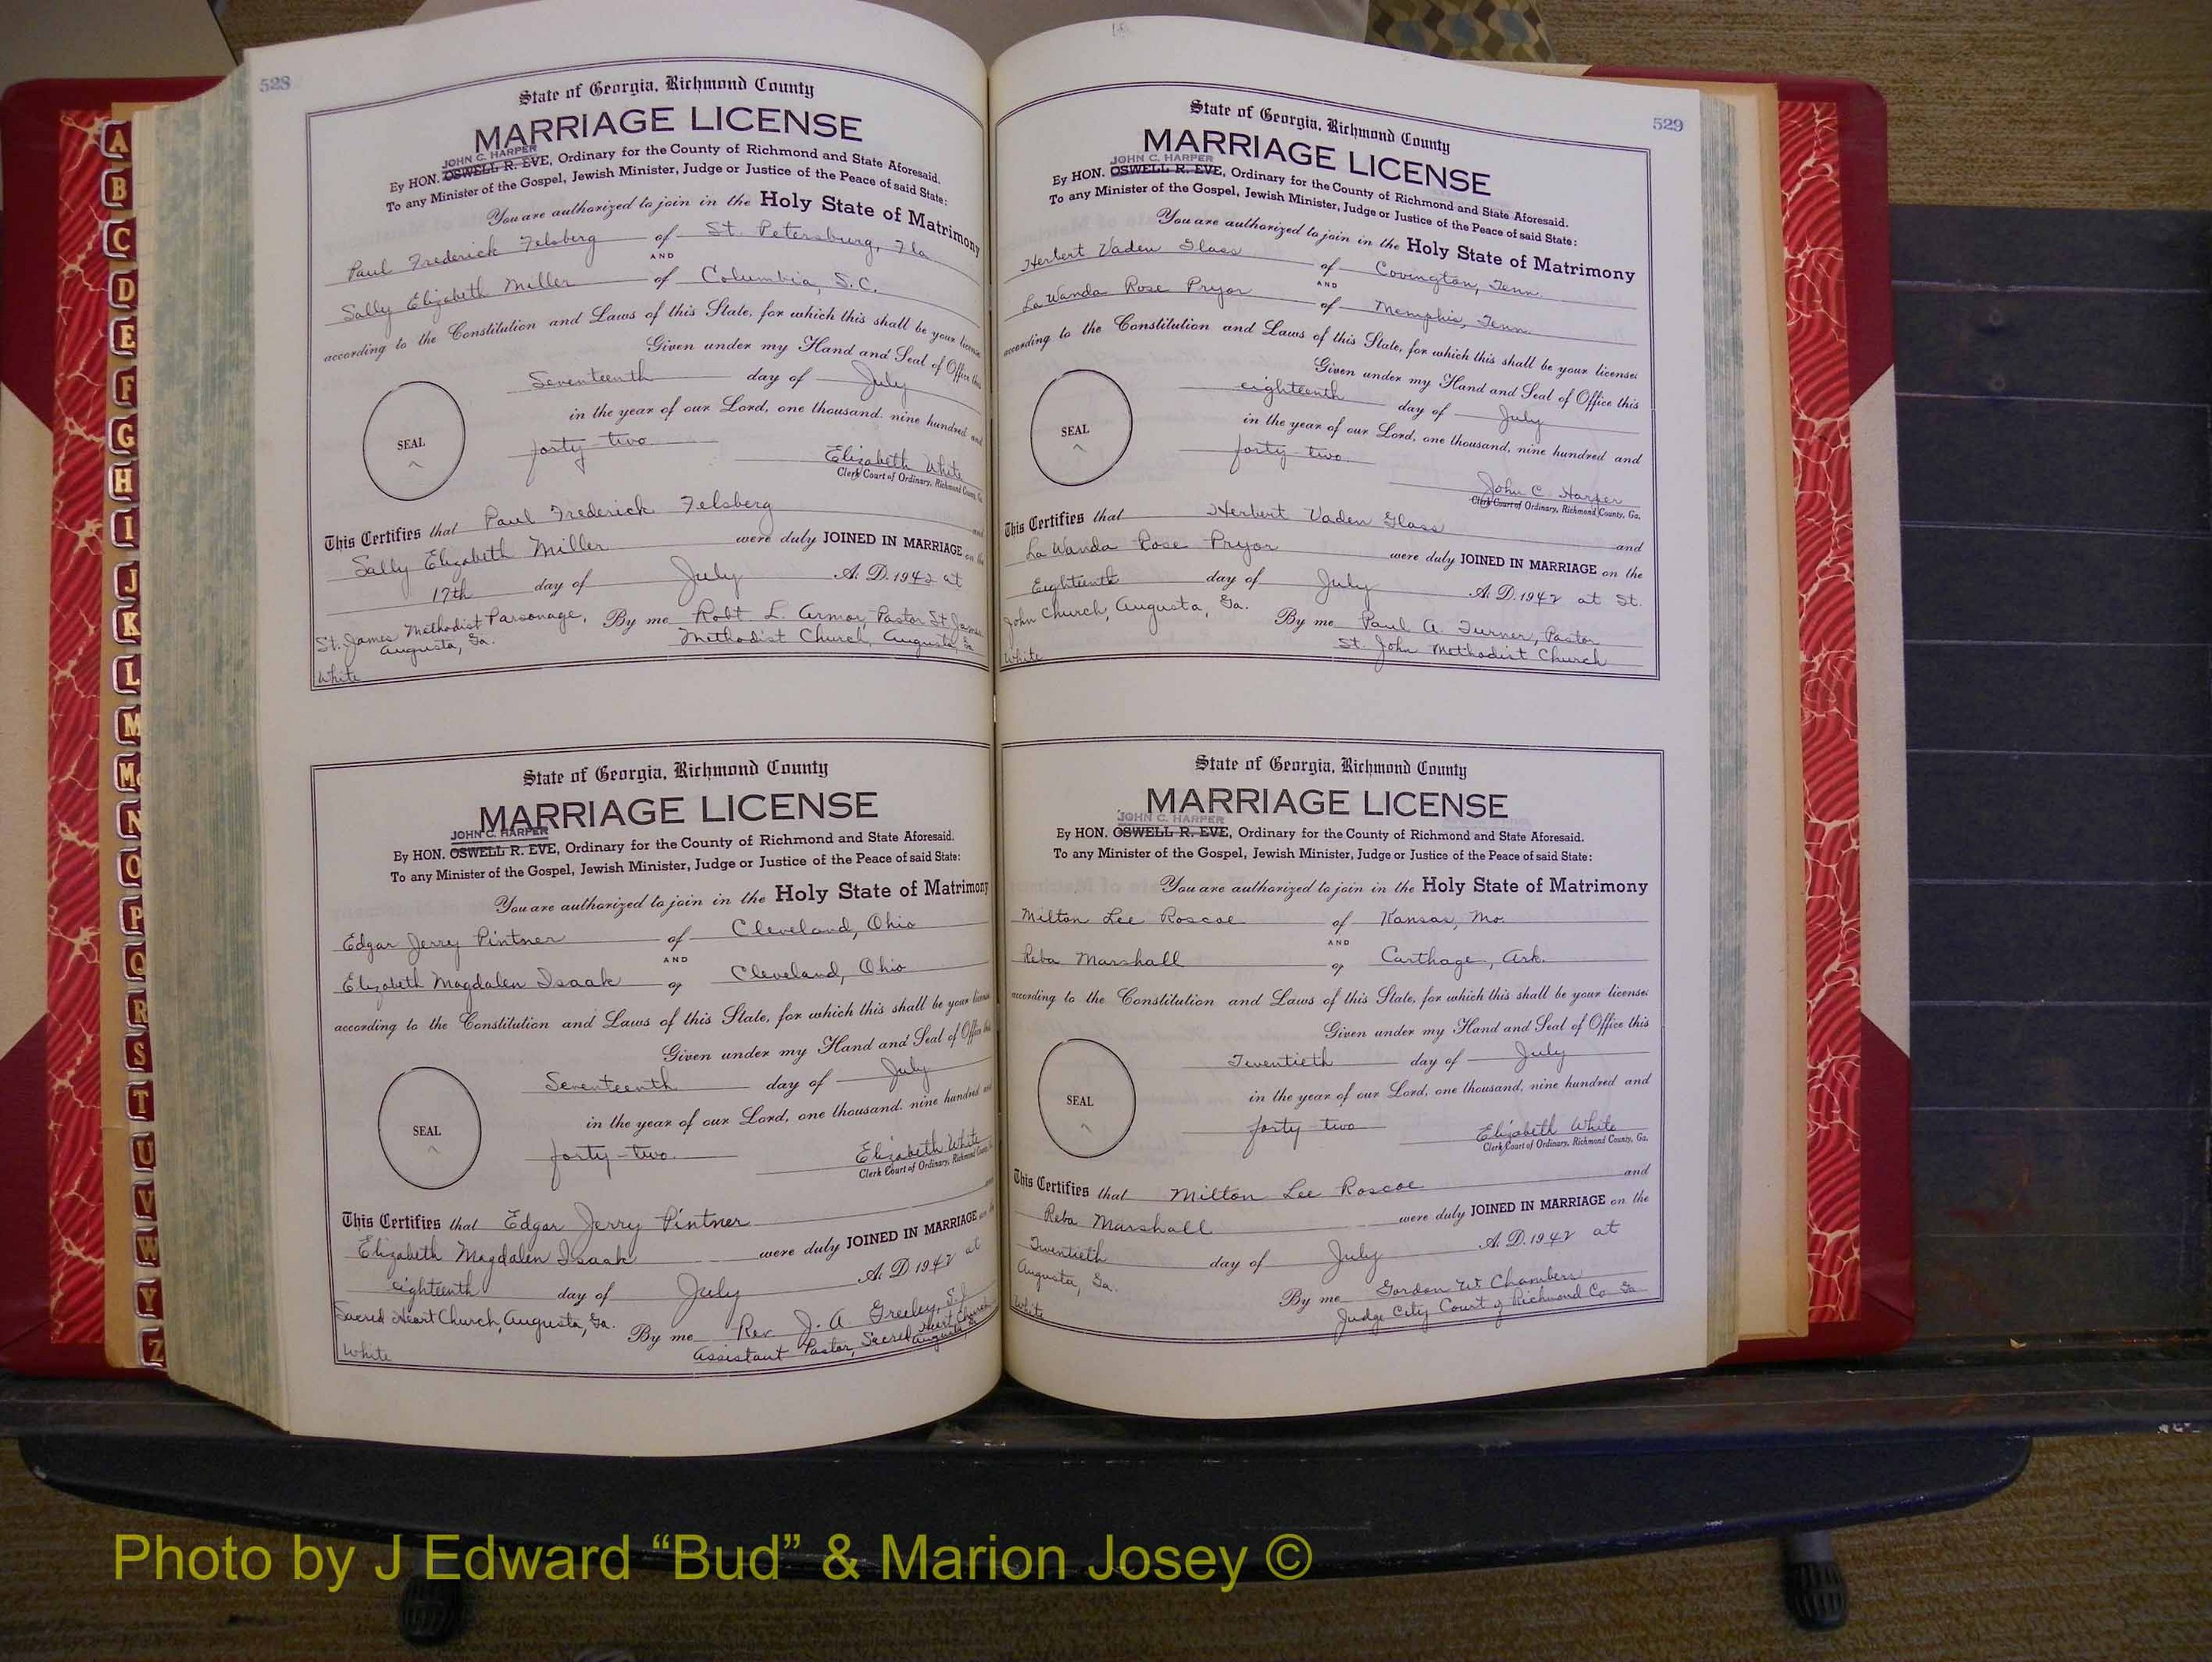 528
State of Georgia, Richmond County
MARRIAGE LICENSE
JOHN C. HARPER
By HON. OSWELL R. EVE, Ordinary for the County of Richmond and State Aforesaid.
To any Minister of the Gospel, Jewish Minister, Judge or Justice of the Peace of said State:
You are authorized to join in the Holy State of Matrimony
Paul Frederick Felsberg of St. Petersburg, Fla.
AND
Sally Elizabeth Miller of Columbia, S.C.
according to the Constitution and Laws of this State, for which this shall be your license
Given under my Hand and Seal of Office this
Seventeenth day of July
in the year of our Lord, one thousand, nine hundred and
SEAL
forty two
Elizabeth White
Clerk Court of Ordinary, Richmond County, Ga.
This Certifies that Paul Frederick Felsberg and
Sally Elizabeth Miller were duly JOINED IN MARRIAGE on the
17th day of July A. D. 1942 at
St. James Methodist Parsonage, By me Robt L. Armor, Pastor St. James
Augusta, Ga. Methodist Church, Augusta, Ga.
White
State of Georgia, Richmond County
MARRIAGE LICENSE
JOHN C. HARPER
By HON. OSWELL R. EVE, Ordinary for the County of Richmond and State Aforesaid.
To any Minister of the Gospel, Jewish Minister, Judge or Justice of the Peace of said State:
You are authorized to join in the Holy State of Matrimony
Edgar Jerry Pintner of Cleveland, Ohio
AND
Elizabeth Magdalen Isaak of Cleveland, Ohio
according to the Constitution and Laws of this State, for which this shall be your license
Given under my Hand and Seal of Office this
Seventeenth day of July
in the year of our Lord, one thousand, nine hundred and
SEAL
forty-two
Elizabeth White
Clerk Court of Ordinary, Richmond County
This Certifies that Edgar Jerry Pintner and
Elizabeth Magdalen Isaak were duly JOINED IN MARRIAGE on the
eighteenth day of July A. D 1942 at
Sacred Heart Church, Augusta, Ga. By me Rev. J. A Greeley, S.J.
Assistant Pastor, Sacred Heart Church
Augusta, Ga
White
529
State of Georgia, Richmond County
MARRIAGE LICENSE
JOHN C. HARPER
By HON. OSWELL R. EVE, Ordinary for the County of Richmond and State Aforesaid.
To any Minister of the Gospel, Jewish Minister, Judge or Justice of the Peace of said State:
You are authorized to join in the Holy State of Matrimony
Herbert Vaden Glass of Covington, Tenn.
AND
La Wanda Rose Pryor of Memphis, Tenn.
according to the Constitution and Laws of this State, for which this shall be your license:
Given under my Hand and Seal of Office this
eighteenth day of July
in the year of our Lord, one thousand, nine hundred and
SEAL
forty-two
John C. Harper
Clerk Court of Ordinary, Richmond County, Ga.
This Certifies that Herbert Vaden Glass and
La Wanda Rose Pryor were duly JOINED IN MARRIAGE on the
Eighteenth day of July A. D. 1942 at St.
John Church, Augusta, Ga. By me Paul A. Turner, Pastor
St. John Methodist Church
White
State of Georgia, Richmond County
MARRIAGE LICENSE
JOHN C. HARPER
By HON. OSWELL R. EVE, Ordinary for the County of Richmond and State Aforesaid.
To any Minister of the Gospel, Jewish Minister, Judge or Justice of the Peace of said State:
You are authorized to join in the Holy State of Matrimony
Milton Lee Roscoe of Kansas, Mo.
AND
Reba Marshall of Carthage, Ark.
according to the Constitution and Laws of this State, for which this shall be your license:
Given under my Hand and Seal of Office this
Twentieth day of July
in the year of our Lord, one thousand, nine hundred and
SEAL
forty-two
Elizabeth White
Clerk Court of Ordinary, Richmond County, Ga.
This Certifies that Milton Lee Roscoe and
Reba Marshall were duly JOINED IN MARRIAGE on the
Twentieth day of July A. D. 1942 at
Augusta, Ga. By me Gordon W Chambers
Judge City Court of Richmond Co Ga
White
A
B
C
D
E
F
G
H
I
J
K
L
M
Mc
N
O
P
Q
R
S
T
U
V
W
Y
Z
Photo by J Edward “Bud” & Marion Josey ©